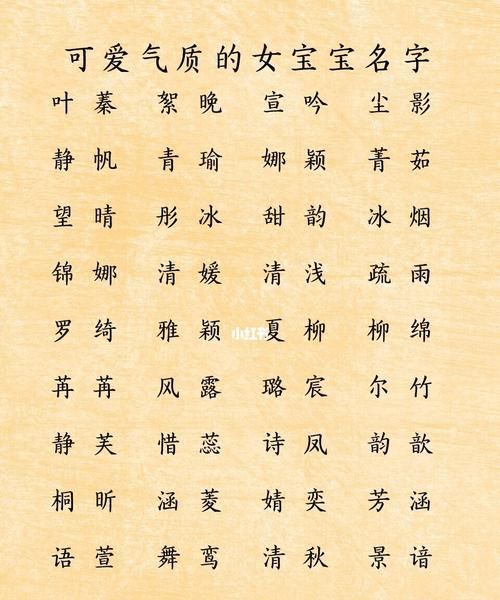 可爱气质的女宝宝名字
叶蓁 絮晚 宣吟 尘影
静帆 青瑜 娜颖 菁茹
望晴 彤冰 甜韵 冰烟
锦娜 清媛 清浅 疏雨
罗绮 雅颖 夏柳 柳绵
小红书
苒苒 风露 璐宸 尔竹
静芙 惜蕊 诗凤 韵歆
桐昕 涵菱 婧奕 芳涵
语萱 舞鸾 清秋 景谙